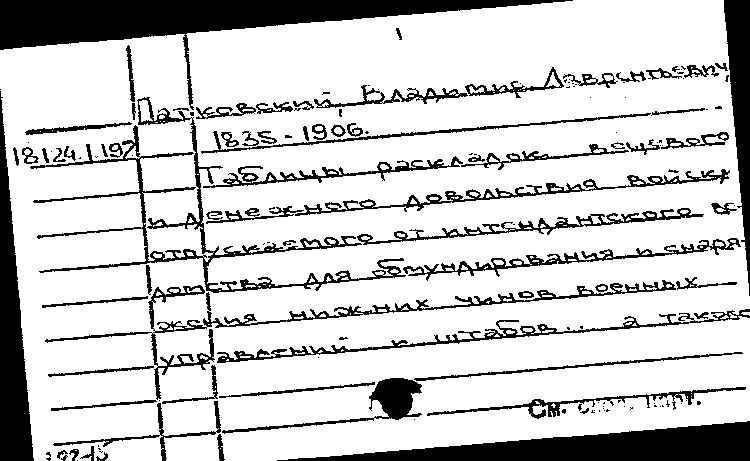 Патковский, Владимир Лаврентьевич,
1835-1906.
18124.I.197
Таблицы раскладок вещевого
и денежного довольствия войску
отпускаемого от интендантского ве-
домства для обмундирования и снаря-
жения нижних чинов военных
управлений и штабов... а таково
См. карт.